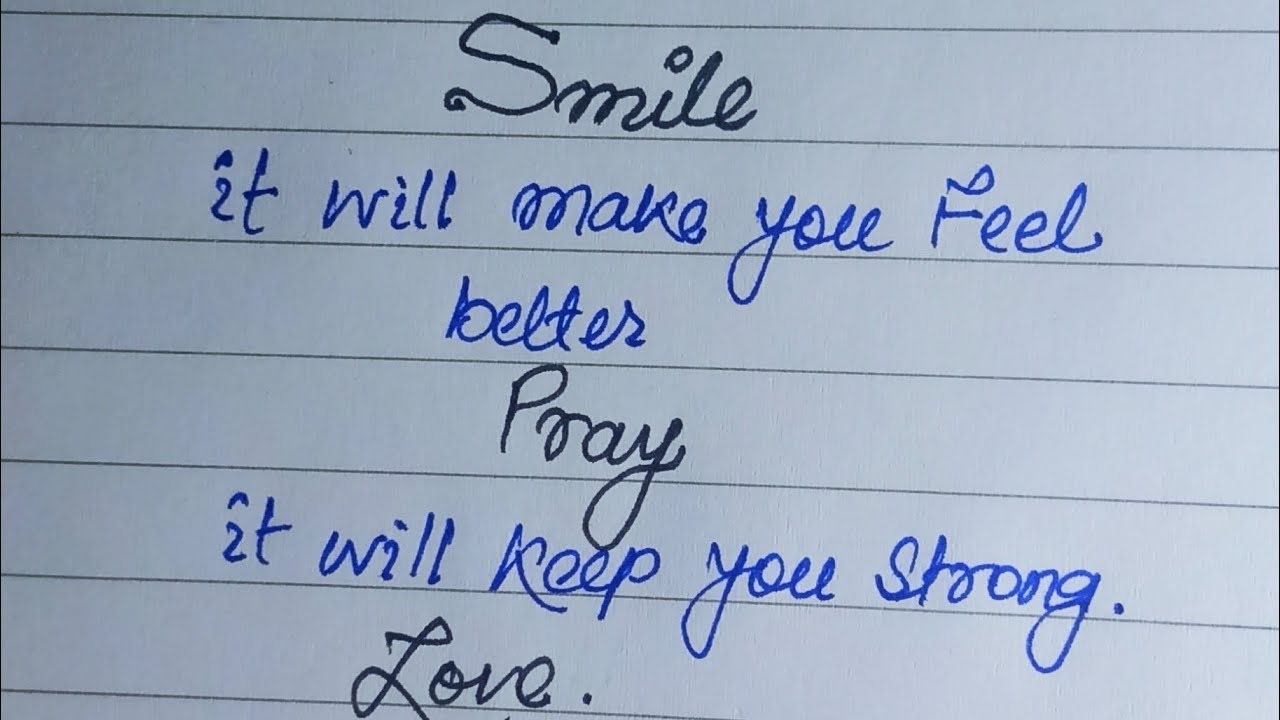 Smile
it will make you Feel
better
Pray
it will keep you strong.
Love.